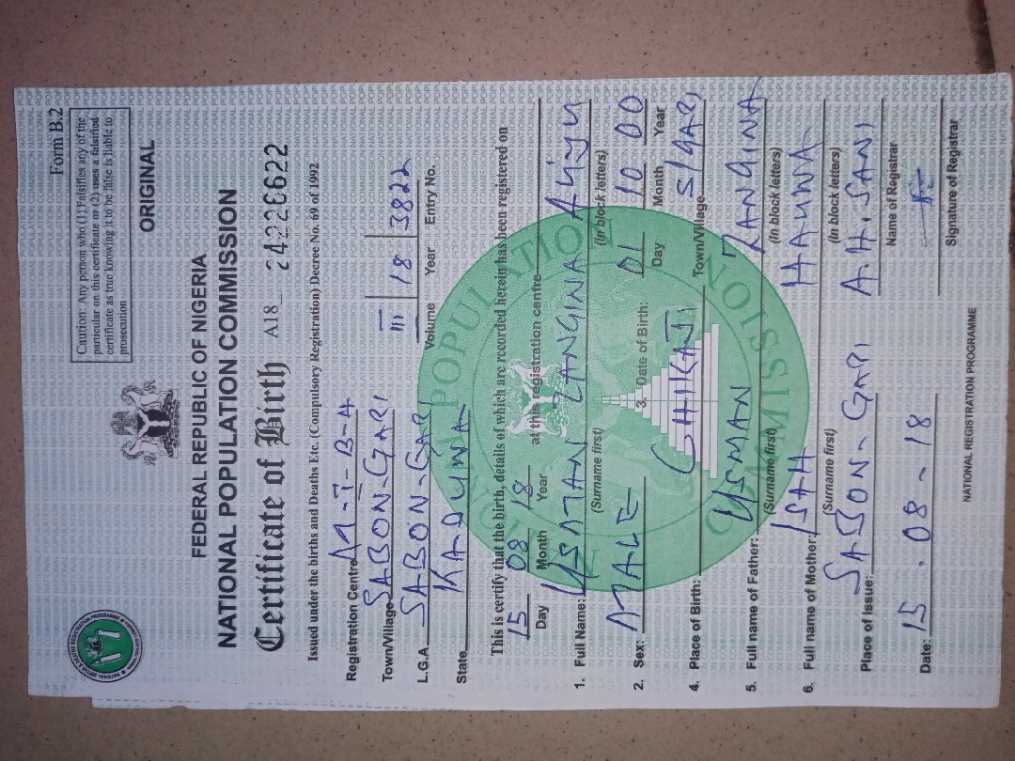 Form B.2
Caution: Any person who (1) Falsifies any of the
particular on this certificate or (2) uses a falsified
certificate as true knowing it to be false is liable to
prosecution
ORIGINAL
FEDERAL REPUBLIC OF NIGERIA
NATIONAL POPULATION COMMISSION
Certificate of Birth A18_ 24226622
Issued under the births and Deaths Etc. (Compulsory Registration) Decree No. 69 of 1992
Registration Centre M-I-B-A
Town/Village SABON-GARI III 18 3822
L.G.A SABON-GARI Volume Year Entry No.
State KADUNA
This is certify that the birth, details of which are recorded herein has been registered on
15 08 18 at this registration centre
Day Month Year
1. Full Name: USMAN ZANGINA Aliyu
(Surname first) (In block letters)
2. Sex: MALE 3. Date of Birth: 01 10 00
Day Month Year
4. Place of Birth: CHIKAJI Town/Village S/GARI
5. Full name of Father: USMAN ZANGINA
(Surname first) (In block letters)
6. Full name of Mother: ISAH HAUWA
(Surname first) (In block letters)
Place of Issue: SABON-GARI A.H.SANI
Name of Registrar
Date: 15.08-18
Signature of Registrar
NATIONAL REGISTRATION PROGRAMME